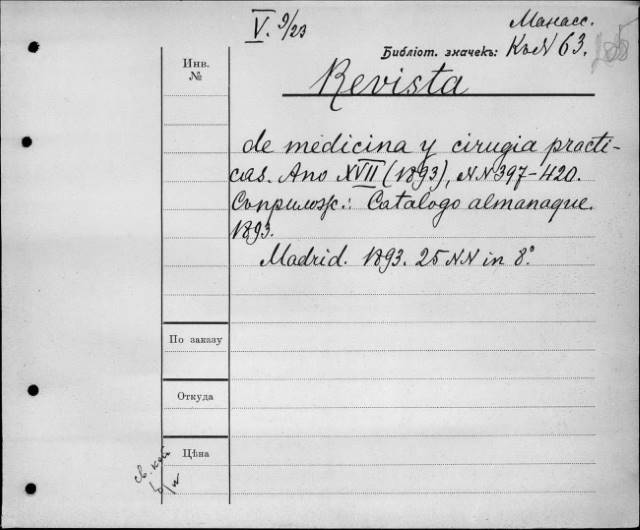 V. 9/23
Манасс.
Библіот. значекъ: КъN 63.
Инв.
№
Revista
de medicina y cirugia practi-
cas. Ano XVII (1893), NN 397-420.
Съ прилож.: Catalogo almanaque.
1893.
Madrid. 1893. 25 NN in 8°
По заказу
Откуда
Цѣна
св. кат